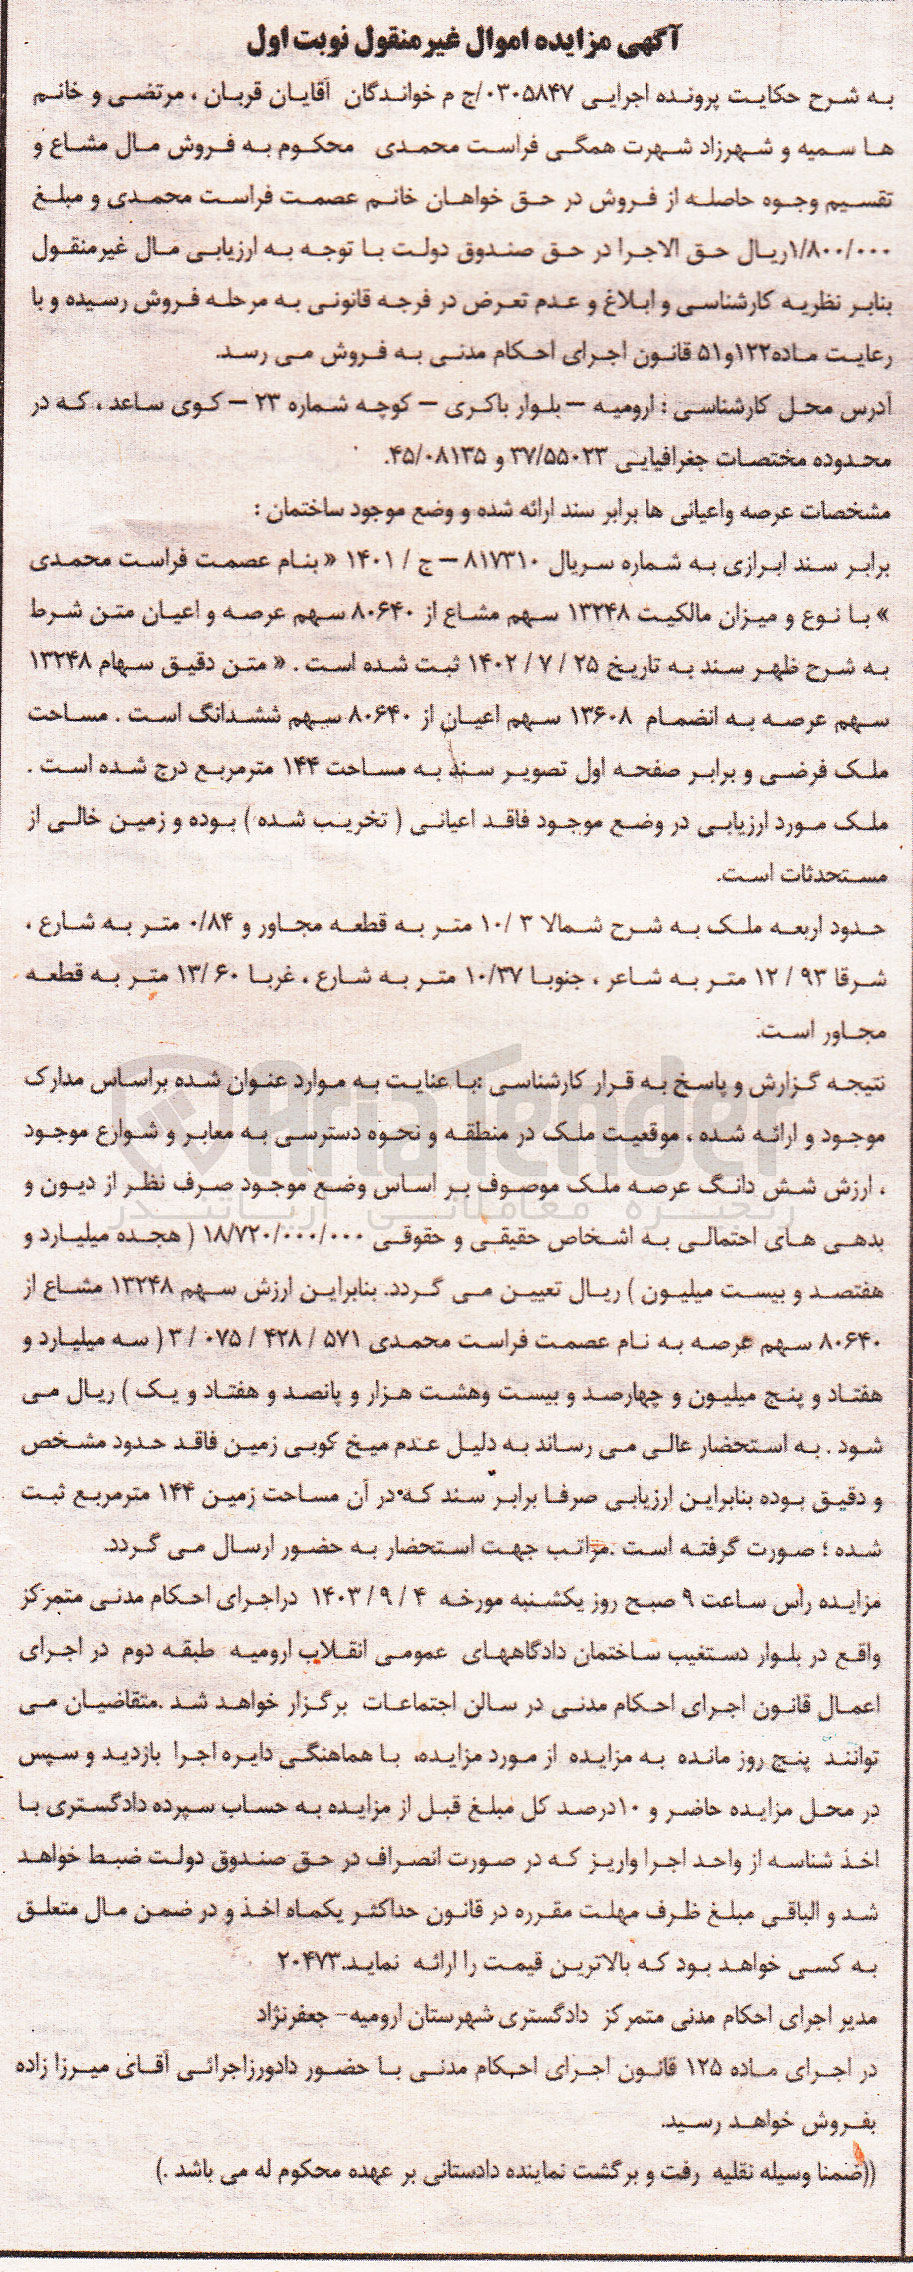 آگهی مزایده اموال غیرمنقول نوبت اول
به شرح حکایت پرونده اجرایی ۰۳۰۵۸۴۷/ج م خواندگان آقایان قربان ، مرتضی و خانم
ها سمیه و شهرزاد شهرت همگی فراست محمدی محکوم به فروش مال مشاع و
تقسیم وجوه حاصله از فروش در حق خواهان خانم عصمت فراست محمدی و مبلغ
۱/۸۰۰/۰۰۰ریال حق الاجرا در حق صندوق دولت با توجه به ارزیابی مال غیرمنقول
بنابر نظریه کارشناسی و ابلاغ و عدم تعرض در فرجه قانونی به مرحله فروش رسیده و با
رعایت ماده۱۲۲و۵۱ قانون اجرای احکام مدنی به فروش می رسد.
آدرس محل کارشناسی : ارومیه – بلوار باکری – کوچه شماره ۲۳ – کوی ساعد ، که در
محدوده مختصات جغرافیایی ۳۷/۵۵۰۲۳ و ۴۵/۰۸۱۳۵.
مشخصات عرصه واعیانی ها برابر سند ارائه شده و وضع موجود ساختمان :
برابر سند ابرازی به شماره سریال ۸۱۷۳۱۰ – ج / ۱۴۰۱ « بنام عصمت فراست محمدی
» با نوع و میزان مالکیت ۱۳۲۴۸ سهم مشاع از ۸۰۶۴۰ سهم عرصه و اعیان متن شرط
به شرح ظهر سند به تاریخ ۲۵ / ۷ / ۱۴۰۲ ثبت شده است . « متن دقیق سهام ۱۳۲۴۸
سهم عرصه به انضمام ۱۳۶۰۸ سهم اعیان از ۸۰۶۴۰ سهم ششدانگ است . مساحت
ملک فرضی و برابر صفحه اول تصویر سند به مساحت ۱۴۴ مترمربع درج شده است .
ملک مورد ارزیابی در وضع موجود فاقد اعیانی ( تخریب شده ) بوده و زمین خالی از
مستحدثات است.
حدود اربعه ملک به شرح شمالا ۳ /۱۰ متر به قطعه مجاور و ۰/۸۴ متر به شارع ،
شرقا ۹۳ / ۱۲ متر به شاعر ، جنوبا ۱۰/۳۷ متر به شارع ، غربا ۶۰ /۱۳ متر به قطعه
مجاور است.
نتیجه گزارش و پاسخ به قرار کارشناسی :با عنایت به موارد عنوان شده براساس مدارک
AriaTender
موجود و ارائه شده ، موقعیت ملک در منطقه و نحوه دسترسی به معابر و شوارع موجود
، ارزش شش دانگ عرصه ملک موصوف بر اساس وضع موجود صرف نظر از دیون و
زنجیره معاملاتی آریاتندر
بدهی های احتمالی به اشخاص حقیقی و حقوقی ۱۸/۷۲۰/۰۰۰/۰۰۰ ( هجده میلیارد و
هفتصد و بیست میلیون ) ریال تعیین می گردد. بنابراین ارزش سهم ۱۳۲۴۸ مشاع از
۸۰۶۴۰ سهم عرصه به نام عصمت فراست محمدی ۵۷۱ / ۴۲۸ / ۰۷۵ / ۳ ( سه میلیارد و
هفتاد و پنج میلیون و چهارصد و بیست وهشت هزار و پانصد و هفتاد و یک ) ریال می
شود . به استحضار عالی می رساند به دلیل عدم میخ کوبی زمین فاقد حدود مشخص
و دقیق بوده بنابراین ارزیابی صرفا برابر سند که در آن مساحت زمین ۱۴۴ مترمربع ثبت
شده ؛ صورت گرفته است .مراتب جهت استحضار به حضور ارسال می گردد.
مزایده راس ساعت ۹ صبح روز یکشنبه مورخه ۴ / ۹ / ۱۴۰۳ دراجرای احکام مدنی متمرکز
واقع در بلوار دستغیب ساختمان دادگاههای عمومی انقلاب ارومیه طبقه دوم در اجرای
اعمال قانون اجرای احکام مدنی در سالن اجتماعات برگزار خواهد شد .متقاضیان می
توانند پنج روز مانده به مزایده از مورد مزایده، با هماهنگی دایره اجرا بازدید و سپس
در محل مزایده حاضر و ۱۰درصد کل مبلغ قبل از مزایده به حساب سپرده دادگستری با
اخذ شناسه از واحد اجرا واریز که در صورت انصراف در حق صندوق دولت ضبط خواهد
شد و الباقی مبلغ ظرف مهلت مقرره در قانون حداکثر یکماه اخذ و در ضمن مال متعلق
به کسی خواهد بود که بالاترین قیمت را ارائه نماید.۲۰۴۷۳
مدیر اجرای احکام مدنی متمرکز دادگستری شهرستان ارومیه– جعفرنژاد
در اجرای ماده ۱۲۵ قانون اجرای احکام مدنی با حضور دادورزاجرائی آقای میرزا زاده
بفروش خواهد رسید.
((ضمنا وسیله نقلیه رفت و برگشت نماینده دادستانی بر عهده محکوم له می باشد .)